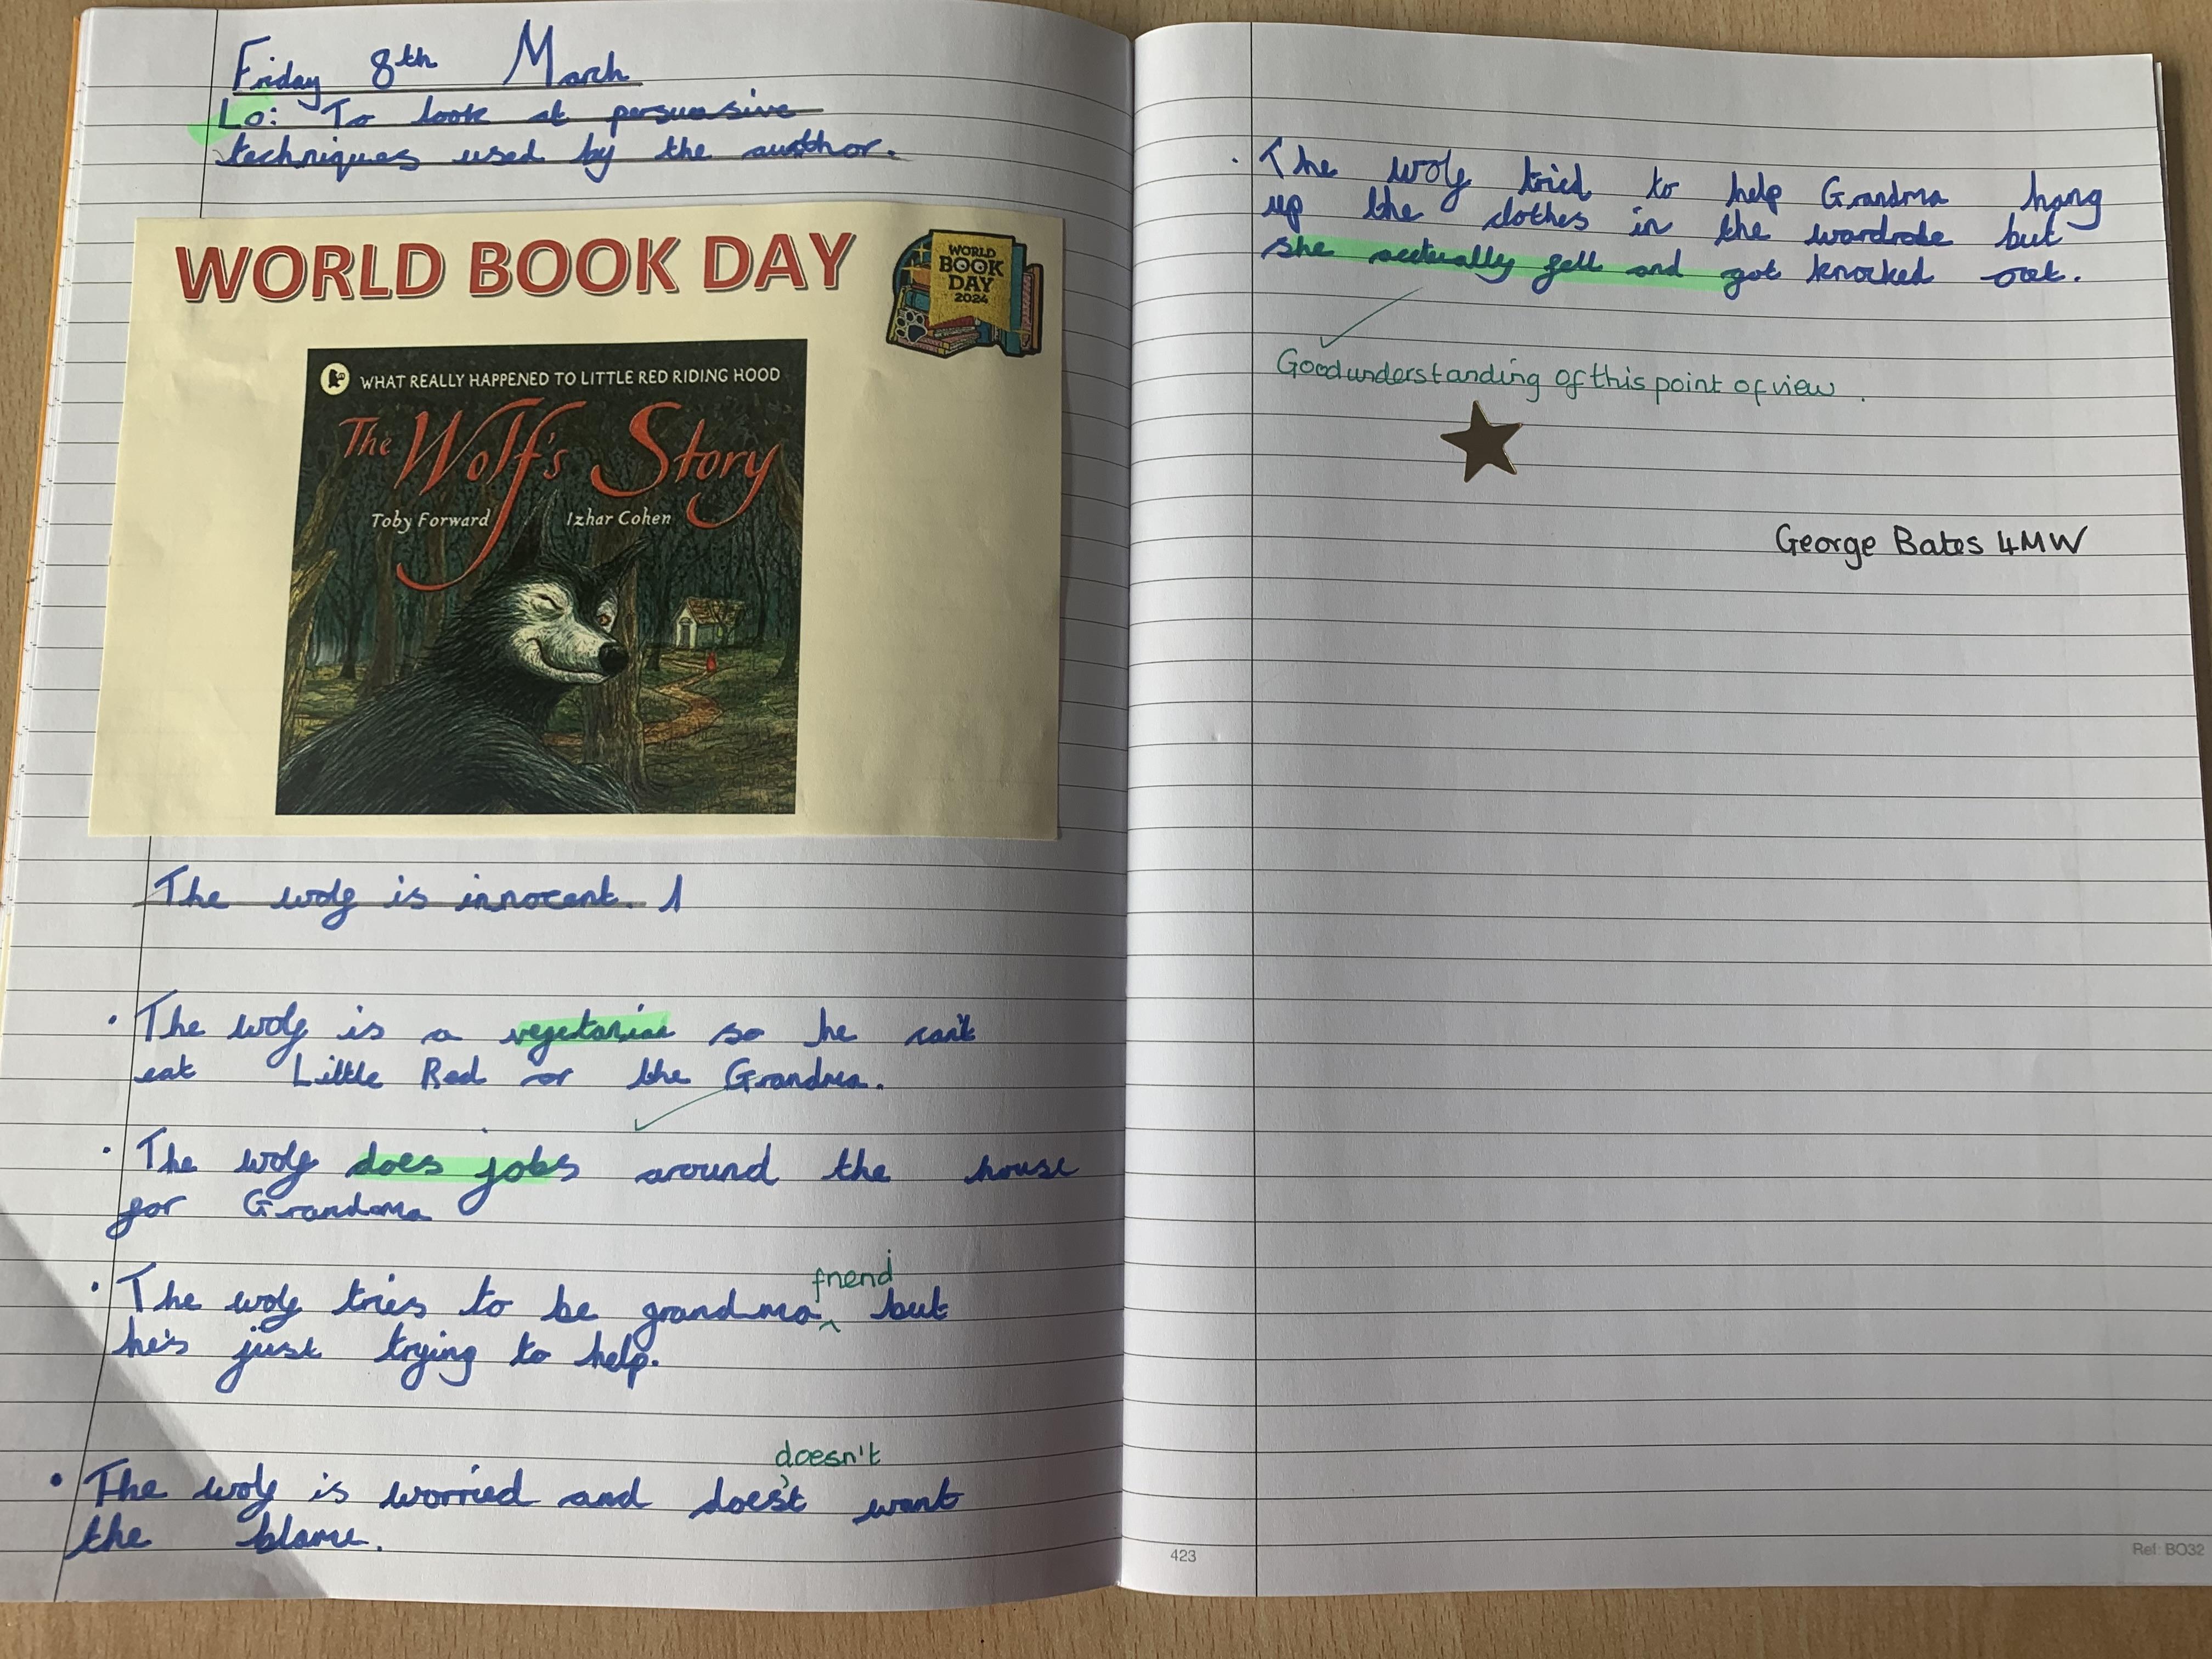 Friday 8th March
Lo: To look at persuasive
techniques used by the author.
WORLD BOOK DAY
WORLD
BOOK
DAY
2024
WHAT REALLY HAPPENED TO LITTLE RED RIDING HOOD
The Wolf's Story
Toby Forward Izhar Cohen
The wolf is innocent. 1
· The wolf is a vegetarian so he can't
eat Little Red or the Grandma.
· The wolf does jobs around the house
for Grandma
friend
· The wolf tries to be grandma ^ but
he's just trying to help.
doesn't
· The wolf is worried and does't want
the blame.
· The wolf tried to help Grandma hang
up the clothes in the wardrobe but
she acturally fell and got knocked out.
Good understanding of this point of view.
George Bates 4MW
423
Ref: BO32